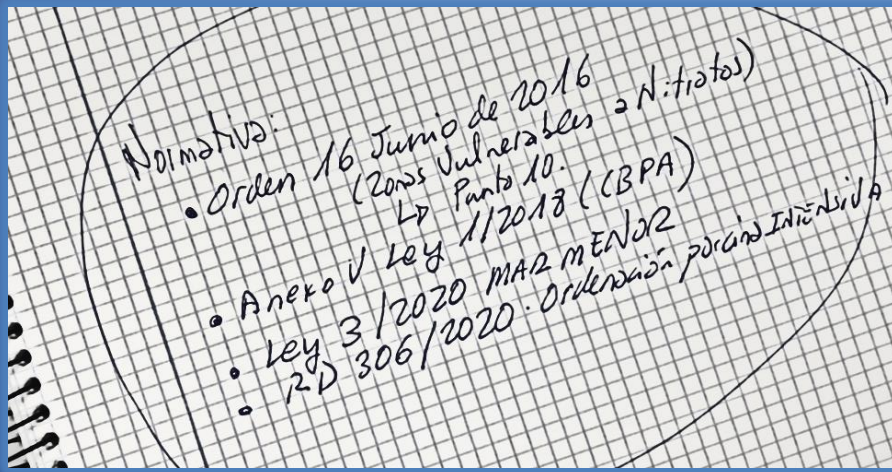 Normativa:
• Orden 16 Junio de 2016
(Zonas Vulnerables a Nitratos)
↳ Punto 10.
• Anexo V Ley 1/2018 (CBPA)
• Ley 3/2020 MAR MENOR
• RD 306/2020. Ordenación porcino INTENSIVA